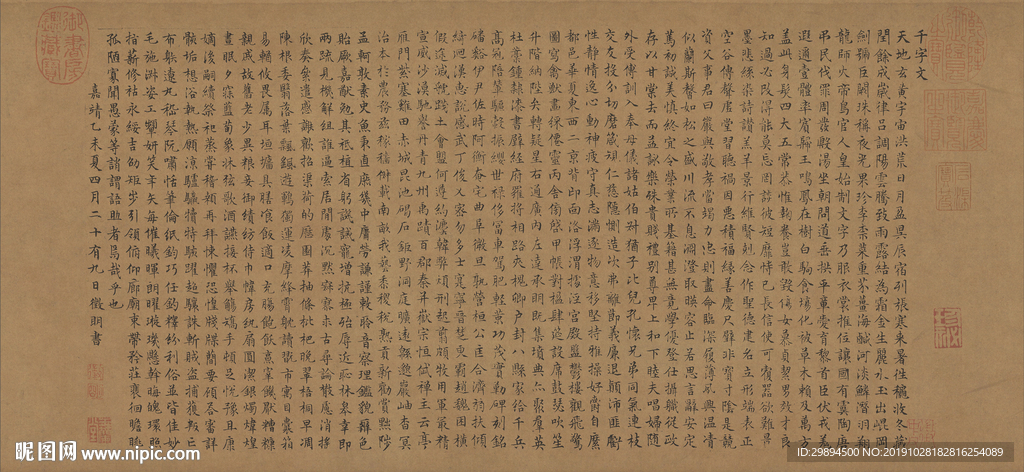 千字文
天地玄黄宇宙洪荒日月盈昃辰宿列張寒來暑往穐收冬藏
閏餘成歲律吕調陽雲騰致雨露結為霜金生麗水玉出崐岡
劒號巨闕珠稱夜光果珍李柰菜重芥薑海鹹河淡鱗潛羽翔
龍師火帝鳥官人皇始制文字乃服衣裳推位讓國有虞陶唐
弔民伐罪周發殷湯坐朝問道垂拱平章愛育黎首臣伏戎羌
遐邇壹體率賓歸王鳴鳳在樹白駒食場化被草木賴及萬方
盖此身髮四大五常恭惟鞠養豈敢毀傷女慕貞絜男效才良
知過必改得能莫忘罔談彼短靡恃己長信使可覆器欲難量
墨悲絲染詩讃羔羊景行維賢剋念作聖德建名立形端表正
空谷傳聲虚堂習聽禍因惡積福緣善慶尺璧非寶寸陰是競
資父事君曰嚴與敬孝當竭力忠則盡命臨深履薄夙興温凊
似蘭斯馨如松之盛川流不息淵澄取暎容止若思言辭安定
篤初誠美慎終宜令榮業所基籍甚無竟學優登仕攝職從政
存以甘棠去而益詠樂殊貴賤禮别尊卑上和下睦夫唱婦隨
外受傅訓入奉母儀諸姑伯叔猶子比兒孔懷兄弟同氣連枝
交友投分切磨箴規仁慈隱惻造次弗離節義廉退顛沛匪虧
性静情逸心動神疲守真志滿逐物意移堅持雅操好爵自縻
都邑華夏東西二京背邙面洛浮渭據涇宫殿盤欝樓觀飛驚
圖寫禽獸畫綵僊靈丙舍傍啓甲帳對楹肆筵設席鼓瑟吹笙
升階納陛弁轉疑星右通廣内左達承明既集墳典亦聚羣英
杜藁鍾隸漆書壁經府羅將相路夾槐卿户封八縣家給千兵
高冠陪輦驅轂振纓世禄侈富車駕肥輕策功茂實勒碑刻銘
磻谿伊尹佐時阿衡奄宅曲阜微旦孰營桓公匡合濟弱扶傾
綺迴漢惠說感武丁俊乂密勿多士寔寧晉楚更霸趙魏困横
假途滅虢踐土會盟何遵約法韓弊煩刑起翦頗牧用軍最精
宣威沙漠馳譽丹青九州禹蹟百郡秦并嶽宗恒岱禪主云亭
雁門紫塞雞田赤城昆池碣石鉅野洞庭曠遠緜邈巖岫杳冥
治本於農務兹稼穡俶載南畝我藝黍稷税熟貢新勸賞黜陟
孟軻敦素史魚秉直庶幾中庸勞謙謹敕聆音察理鑑貌辯色
貽厥嘉猷勉其祗植省躬譏誡寵增抗極殆辱近恥林皋幸即
兩疏見機解組誰逼索居閒處沉默寂寥求古尋論散慮逍遥
欣奏累遣慼謝歡招渠荷的歷園莽抽條枇杷晚翠梧桐早凋
陳根委翳落葉飄颻遊鵾獨運凌摩絳霄耽讀翫市寓目囊箱
易輶攸畏屬耳垣墻具膳飡飯適口充腸飽飫烹宰飢厭糟糠
親戚故舊老少異糧妾御績紡侍巾帷房紈扇圓潔銀燭煒煌
晝眠夕寐藍笋象牀弦歌酒讌接杯舉觴矯手頓足悦豫且康
嫡後嗣續祭祀蒸嘗稽顙再拜悚懼恐惶牋牒簡要顧答審詳
骸垢想浴執熱願涼驢騾犢特駭躍超驤誅斬賊盗捕獲叛亡
布射遼丸嵇琴阮嘯恬筆倫紙鈞巧任釣釋紛利俗並皆佳妙
毛施淑姿工顰妍笑年矢每催曦暉朗曜璇璣懸斡晦魄環照
指薪修祜永綏吉劭矩步引領俯仰廊廟束帶矜莊徘徊瞻眺
孤陋寡聞愚蒙等誚謂語助者焉哉乎也
嘉靖乙未夏四月二十有九日徵明書
昵图网 www.nipic.com
ID:29894500 NO:20191028182816254089